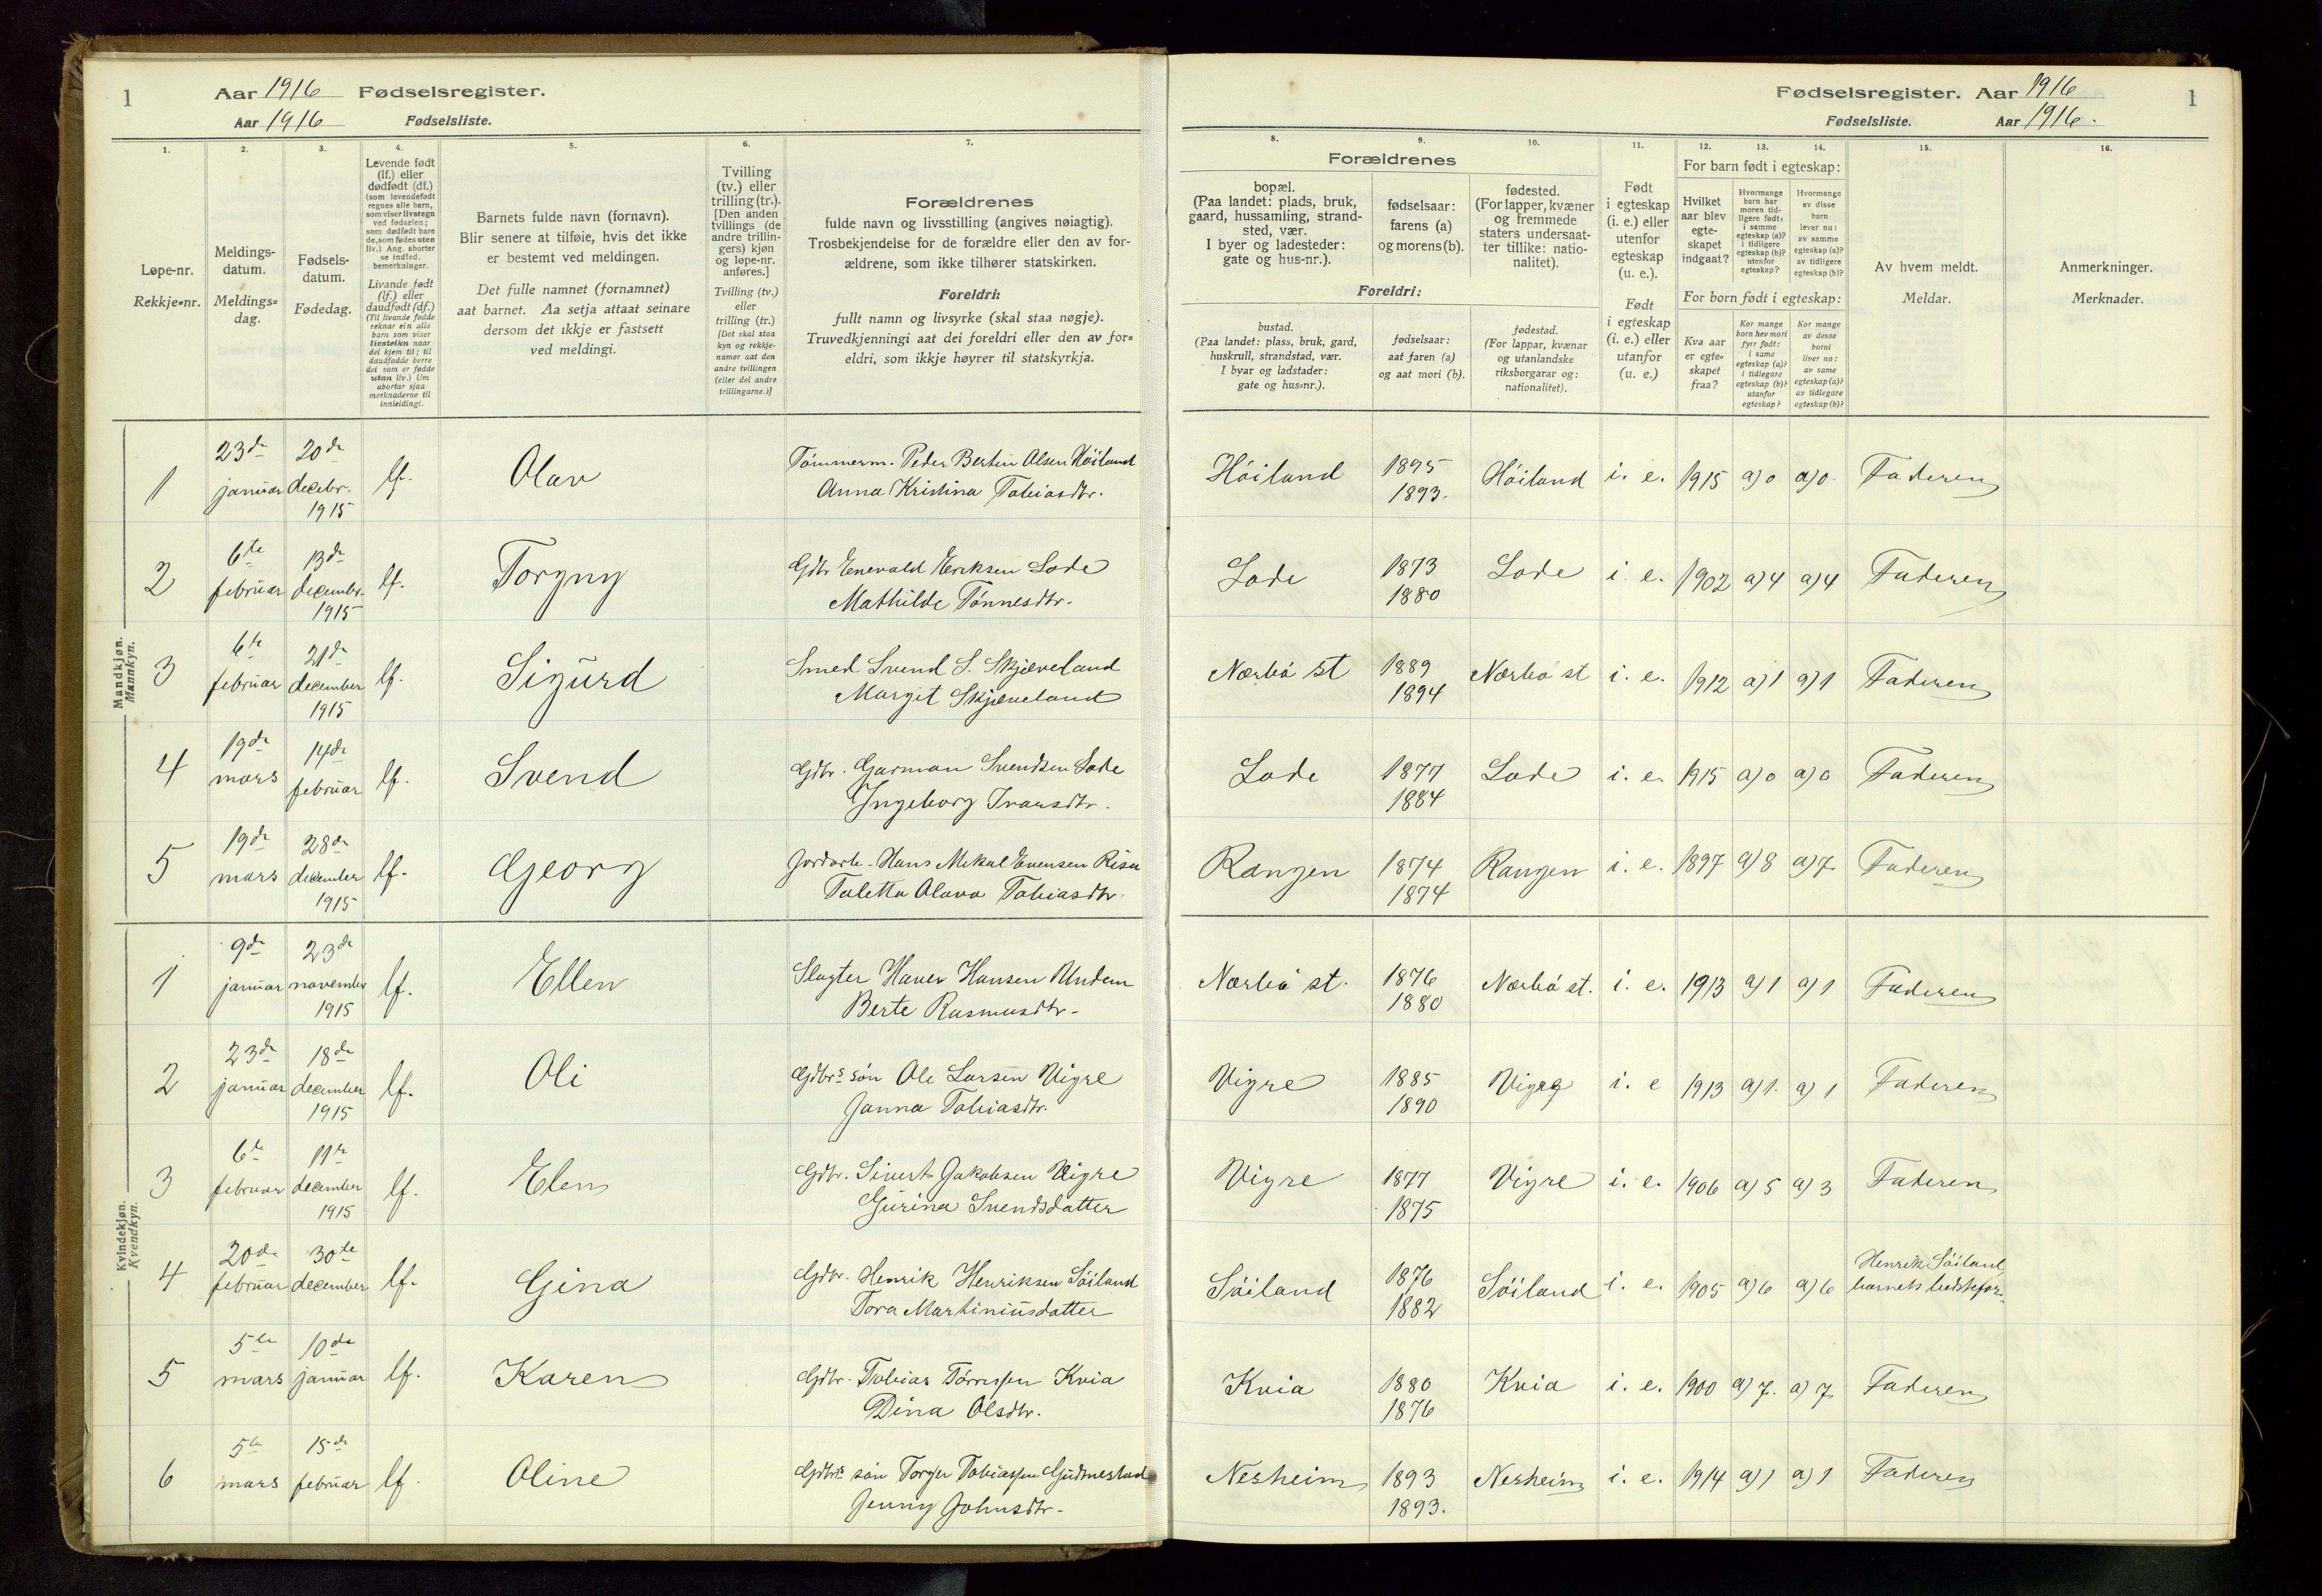 1
Aar 1916 Fødselsregister.
Aar 1916 Fødselsliste.
1. 2. 3. 4. 5. 6. 7.
Løpe-nr.
Rekkje-nr.
Meldings-
datum.
Meldings-
dag.
Fødsels-
datum.
Fødedag.
Levende født
(lf.) eller
dødfødt (df.)
(som levendefødt
regnes alle barn,
som viser livstegn
ved fødselen;
som dødfødt bare
de, som fødes uten
liv.) Ang. aborter
se indled.
bemerkninger.
Livande født
(lf.) eller
daudfødt (df.)
(Til livande fødde
reknar ein alle
barn som viser
livsteikn naar
dei kjem til; til
daudfødde berre
dei som er fødde
utan liv.) Um
abortar sjaa
merknaderne til
innleidingi.
Barnets fulde navn (fornavn).
Blir senere at tilføie, hvis det ikke
er bestemt ved meldingen.
Det fulle namnet (fornamnet)
aat barnet. Aa setja attaat seinare
dersom det ikkje er fastsett
ved meldingi.
Tvilling
(tv.) eller
trilling (tr.).
[Den anden
tvillings (de
andre trillin-
gers) kjøn
og løpe-nr.
anføres.]
Tvilling (tv.)
eller
trilling (tr.)
[Det skal staa
kyn og rekkje-
numer aat den
andre tvillingen
(eller dei andre
trillingarne.)]
Forældrenes
fulde navn og livsstilling (angives nøiagtig).
Trosbekjendelse for de forældre eller den av for-
ældrene, som ikke tilhører statskirken.
Foreldri:
fullt namn og livsyrke (skal staa nøgje).
Truvedkjenningi aat dei foreldri eller den av for-
eldri, som ikkje høyrer til statskyrkja.
Mandkjøn.
Mannkyn.
1 23de januar 20de decebr. 1915 lf. Olav Tømmerm. Peder Bertin Olsen Höiland
Anna Kristina Tobiasdtr.
2 6te februar 13de decembr. 1915 lf. Torgny Gdbr Enevald Eriksen Lode
Mathilde Tønnesdtr.
3 6te februar 21de december 1915 lf. Sigurd Smed Svend S. Skjæveland
Margit Skjæveland
4 19de mars 14de februar lf. Svend Gdbr. Garman Svendsen Lode
Ingeborg Ivarsdtr.
5 19de mars 28de december 1915 lf. Georg Jordarb. Hans Mikal Evensen Risa
Taletta Olava Tobiasdtr.
Kvindekjøn.
Kvendkyn.
1 9de januar 23de november 1915 lf. Ellen Slagter Haver Hansen Undem
Berte Rasmusdtr.
2 23de januar 18de december 1915 lf. Oli Gdbrs søn Ole Larsen Vigre
Janna Tobiasdtr.
3 6te februar 11te december 1915 lf. Elen Gdbr. Sivert Jakobsen Vigre
Gurina Svendsdatter
4 20de februar 30te december lf. Gina Gdbr. Henrik Henriksen Söiland
Tora Martiniusdatter
5 5te mars 10de januar lf. Karen Gdbr. Tobias Tørresen Kvia
Dina Olsdtr.
6 5te mars 15de februar lf. Oline Gdbrs søn Torger Tobiassen Gudmestad
Jenny Johnsdtr.
Fødselsregister. Aar 1916
1
Fødselsliste. Aar 1916.
8. 9. 10. 11. 12. 13. 14. 15. 16.
Forældrenes
bopæl.
(Paa landet: plads, bruk,
gaard, hussamling, strand-
sted, vær.
I byer og ladesteder:
gate og hus-nr.).
fødselsaar:
farens (a)
og morens (b).
fødested.
(For lapper, kvæner
og fremmede
staters undersaat-
ter tillike: natio-
nalitet).
Foreldri:
bustad.
(Paa landet: plass, bruk, gard,
huskrull, strandstad, vær.
I byar og ladstader:
gate og hus-nr.).
fødselsaar:
aat faren (a)
og aat mori (b).
fødestad.
(For lappar, kvænar
og utanlandske
riksborgarar og:
nationalitet).
Født
i egteskap
(i. e.) eller
utenfor
egteskap
(u. e.).
Født
i egteskap
(i. e.) eller
utanfor
(u. e.)
For barn født i egteskap:
Hvilket
aar blev
egte-
skapet
indgaat?
Hvormange
barn har
moren tid-
ligere født:
i samme
egteskap (a)?
i tidligere
egteskap (b)?
utenfor
egteskap?
Hvormange
av disse
barn
lever nu:
av samme
egteskap (a)?
av tidligere
egteskap (b)?
For born født i egteskap:
Kva aar
er egte-
skapet
fraa?
Kor mange
born hev mori
fyrr født:
i same
egteskap (a)?
i tidlegare
egteskap (b)?
utanfor
egteskap?
Kor mange
av desse
borni
liver no:
av same
egteskap (a)?
av tidlegare
egteskap (b)?
Av hvem meldt.
Meldar.
Anmerkninger.
Merknader.
Höiland 1895 1893. Höiland i. e. 1915 a) 0 a) 0. Faderen
Lode 1873 1880 Lode i. e. 1902 a) 4 a) 4 Faderen
Nærbö st 1889 1894 Nærbö st i. e. 1912 a) 1 a) 1 Faderen
Lode 1877 1884 Lode i. e. 1915 a) 0 a) 0 Faderen
Rangen 1874 1874 Rangen i. e. 1897 a) 8 a) 7. Faderen
Nærbö st. 1876 1880 Nærbö st. i. e. 1913 a) 1 a) 1 Faderen
Vigre 1885 1890 Vigre i. e 1913 a) 1. a) 1 Faderen
Vigre 1877 1875 Vigre i. e. 1906 a) 5 a) 3 Faderen
Söiland 1876 1882 Söiland i. e. 1905 a) 6 a) 6 Henrik Söiland
barnets bedstefar.
Kvia 1880 1876 Kvia i. e. 1900 a) 7. a) 7 Faderen
Nesheim 1893 1893. Nesheim i. e. 1914 a) 1 a) 1 Faderen